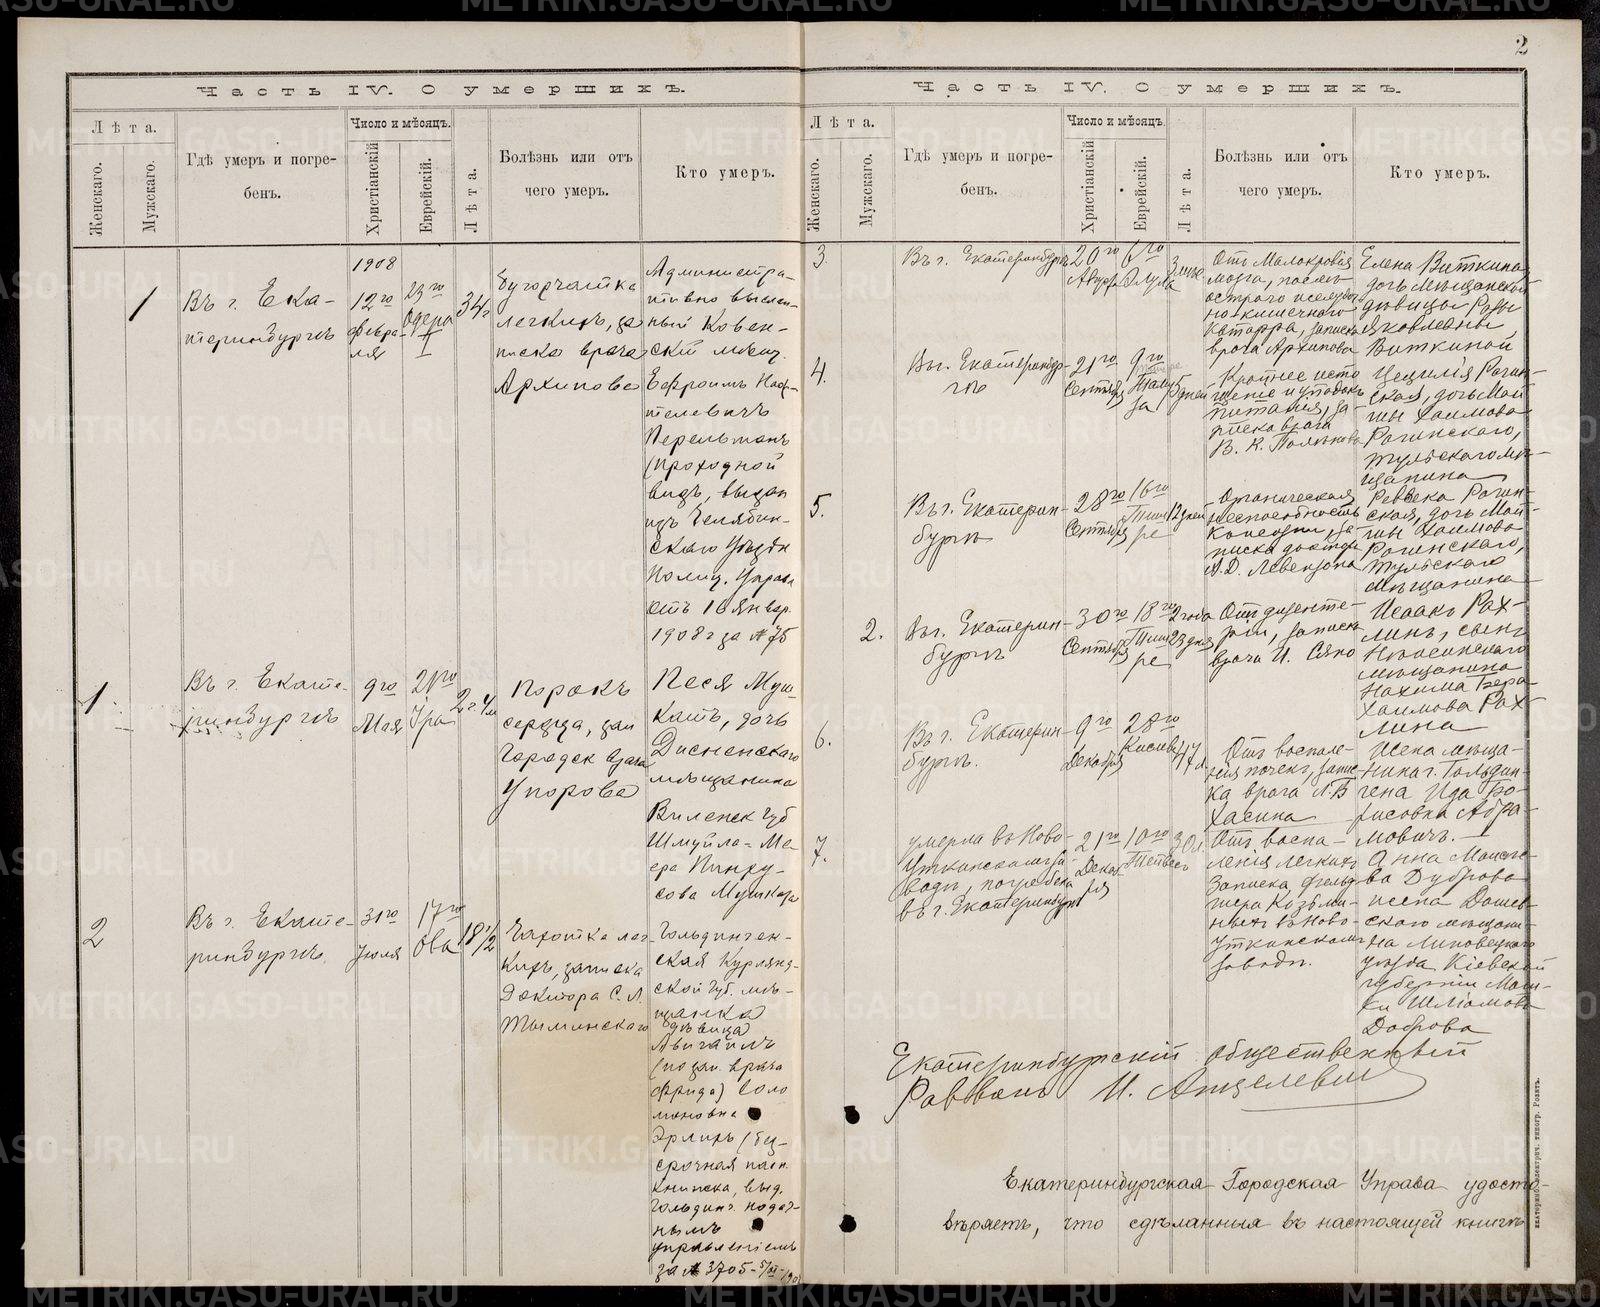 2
Часть IV. О умершихъ.
Лѣта.
Женскаго.
Мужскаго.
Гдѣ умеръ и погре-
бенъ.
Число и мѣсяцъ.
Христіанскій
Еврейскій.
Лѣта.
Болѣзнь или отъ
чего умеръ.
Кто умеръ.
1
Въ г. Ека-
теринбургѣ
1908
12го
Февра-
ля
23го
Одера
I
34г
Бугорчатка
легкихъ, за
писка врача
Архипова
Администра-
тивно выслан-
ный Ковен-
скій мѣщ.
Ефроимъ Наф-
телевичъ
Перельманъ
(проходной
видъ, выдан
изъ Челябин-
скаго Уѣздн
Полиц. Управл
отъ 16 Январ.
1908 г за № 75
1.
Въ г. Екате-
ринбургѣ
9го
Мая
21го
Іра
2 г. 4 м
Порокъ
сердца, зап
Городск врача
Упорова
Песя Муш-
катъ, дочь
Дисненскаго
мѣщанина
Виленск Губ
Шмуйла-Ме-
ера Пинху-
сова Мушката
2
Въ г. Екате-
ринбургѣ.
31го
Іюля
17го
Ова
18 1/2
Чахотка лег-
кихъ, записка
Доктора С. Л.
Тыминскаго
Гольдинген-
ская Курлянд-
ской Губ. мѣ-
щанка
дѣвица
Авигаиль
(по зап. врача
Фрида) Соло
моновна
Эрлихъ (без-
срочная пасп.
книжка, выд.
Гольдинг. подат-
нымъ
управленіемъ
за № 3705
Часть IV. О умершихъ.
Лѣта.
Женскаго.
Мужскаго.
Гдѣ умеръ и погре-
бенъ.
Число и мѣсяцъ.
Христіанскій
Еврейскій.
Лѣта.
Болѣзнь или отъ
чего умеръ.
Кто умеръ.
3.
Въ г. Екатеринбургѣ
20го
Август
6го
Элула
3 мѣс
Отъ Малокровія
мозга, послѣ
острого желудоч
но-кишечнаго
Катарра, записка
врача Архипова
Елена Виткина
дочь мѣщанской
дѣвицы Розы
Яковлевны
Виткиной
4.
Въ г. Екатеринбур-
гѣ
21го
Сентябр
9го
5
дней
Крайнее исто
щеніе и упадокъ
питанія, за-
писка врача
В. К. Полѣнова
Цецилія Рогин-
ская, дочь Мой
ши Хаимова
Рогинскаго,
Тульскаго мѣ-
щанина
5.
Въ г. Екатерин-
бургѣ
28го
Сентября
16го
Тиш
ре
12 дней
Органическая
неспособность
Къ жизни, за-
писка доктора
А. Д. Левензона
Ревекка Рогин-
ская, дочь Мой-
ши Хаимова
Рогинскаго,
Тульскаго
мѣщанина
2.
Въ г. Екатерин-
бургѣ
30го
Сентябр
18го
Тиш
ре
2 года
23 дня
Отъ дизенте-
ріи, записка
врача И. Сяно
Исаакъ Рах-
линъ, сынъ
мѣщанина
Нахима Бера
Хаимова Рах-
лина
6.
Въ г. Екатерин-
бургѣ.
9го
Декабря
28го
Кислев
47
л.
Отъ воспале-
нія почекъ, запис-
ка врача Л. Б
Хасина
Жена мѣща-
нина г. Гольдин-
гена Ида Бо-
рисовна Абра-
мовичъ.
7.
умерла въ Ново-
Уткинскомъ за-
водѣ, погребена
въ г. Екатеринбургѣ
21го
Декаб
ря
10го
Тейвес
30 л.
Отъ воспа-
ленія легкихъ
Записка, фельд
шера Козьми-
ныхъ въ Ново-
Уткинскомъ
заводѣ.
Анна Моисее-
ва Дуброва
жена Дашев-
скаго мѣщани-
на Липовецкаго
уѣзда Кіевской
губерніи Мош-
ки Шліомова
Доброва
Екатеринбургскій общественный
Раввинъ И. Ашелевичъ
Екатеринбургская Городская Управа удосто-
вѣряетъ, что сдѣланныя въ настоящей книгѣ
METRIKI.GASO-URAL.RU